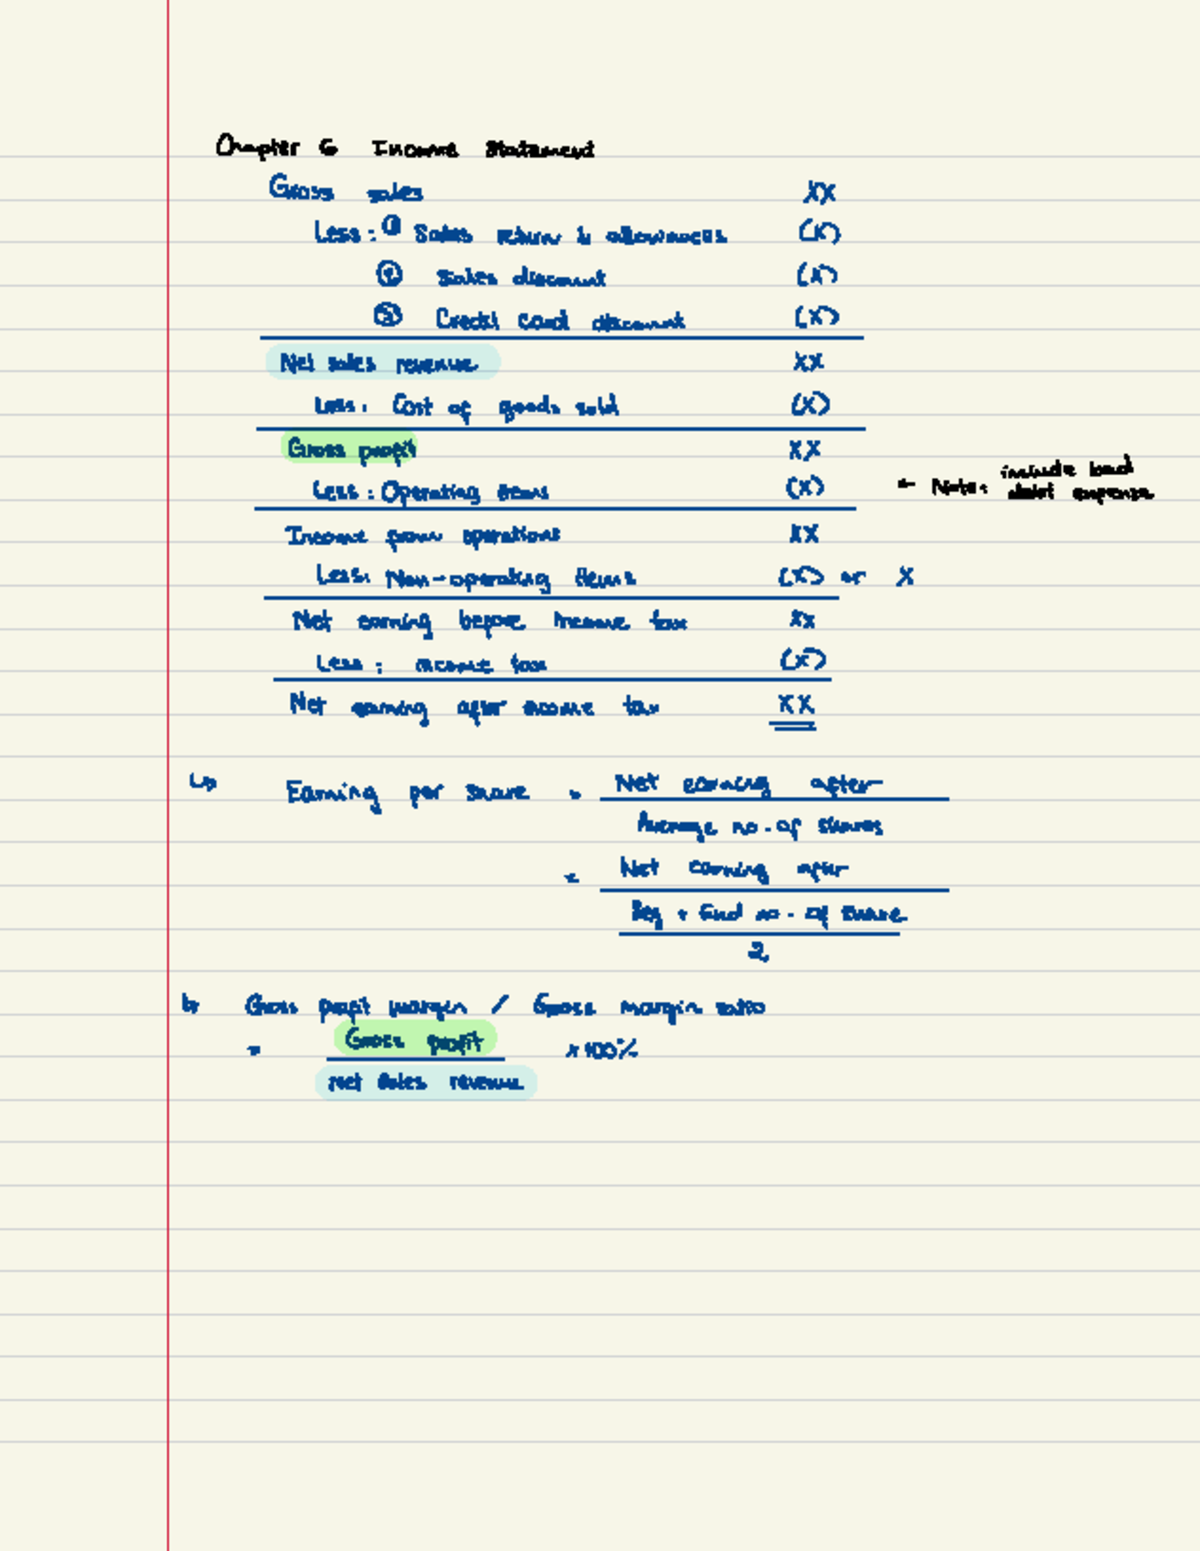 Chapter 6 Income Statement
Gross sales XX
Less: ① Sales return & allowances (X)
② Sales discount (X)
③ Credit card discount (X)
Net sales revenue XX
Less: Cost of goods sold (X)
Gross profit XX
Less: Operating items (X) ← Note: include bad debt expense
Income from operations XX
Less: Non-operating items (X) or X
Net earning before income tax XX
Less: income tax (X)
Net earning after income tax XX
↳ Earning per share = Net earning after
Average no. of shares
= Net earning after
Beg + End no. of share
2
↳ Gross profit margin / Gross margin ratio
= Gross profit × 100%
Net Sales revenue